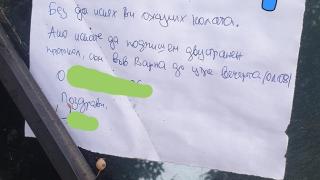 Без да искам ви охлузих колата.
Ако искате да подпишем двустранен
протокол, съм във Варна до утре вечерта
О
Поздрави,